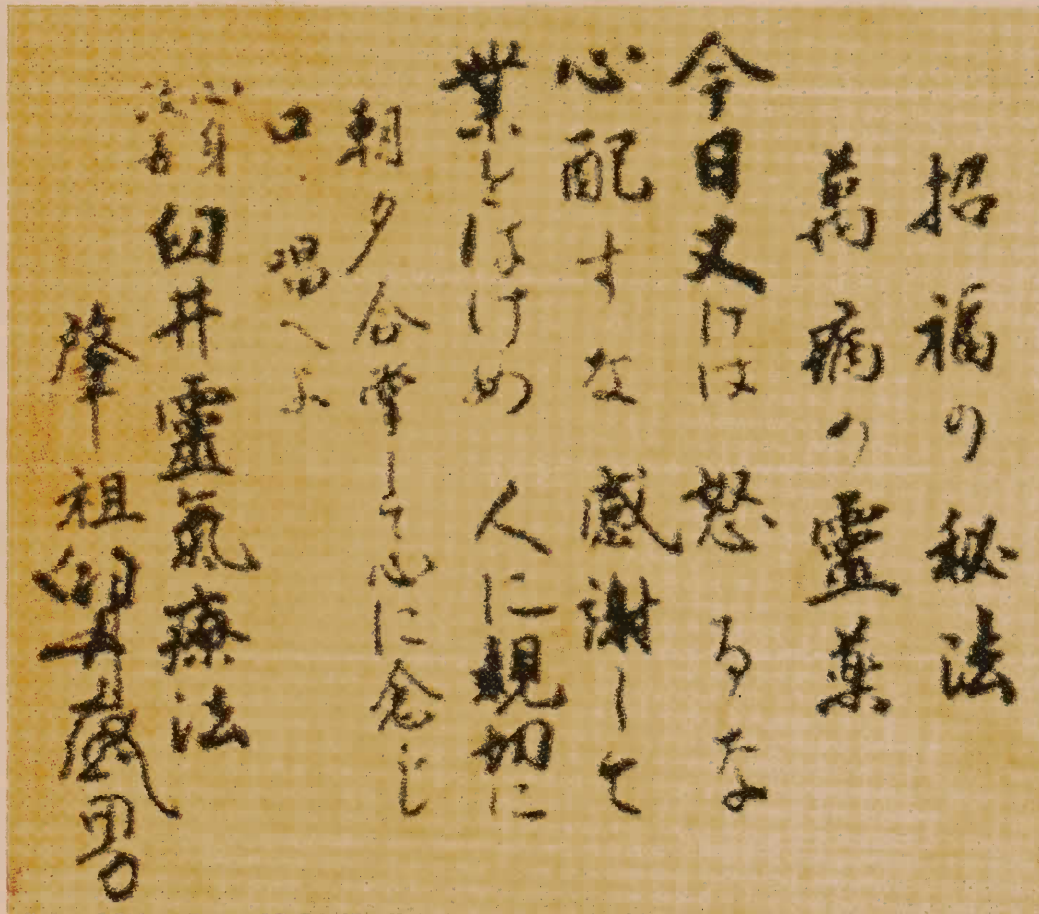 招福の秘法
萬病の靈薬
今日丈けは 怒るな
心配すな 感謝して
業をはけめ 人に親切に
朝夕合掌して心に念じ
口 唱へよ
心身改善 臼井靈氣療法
肇祖 臼井甕男